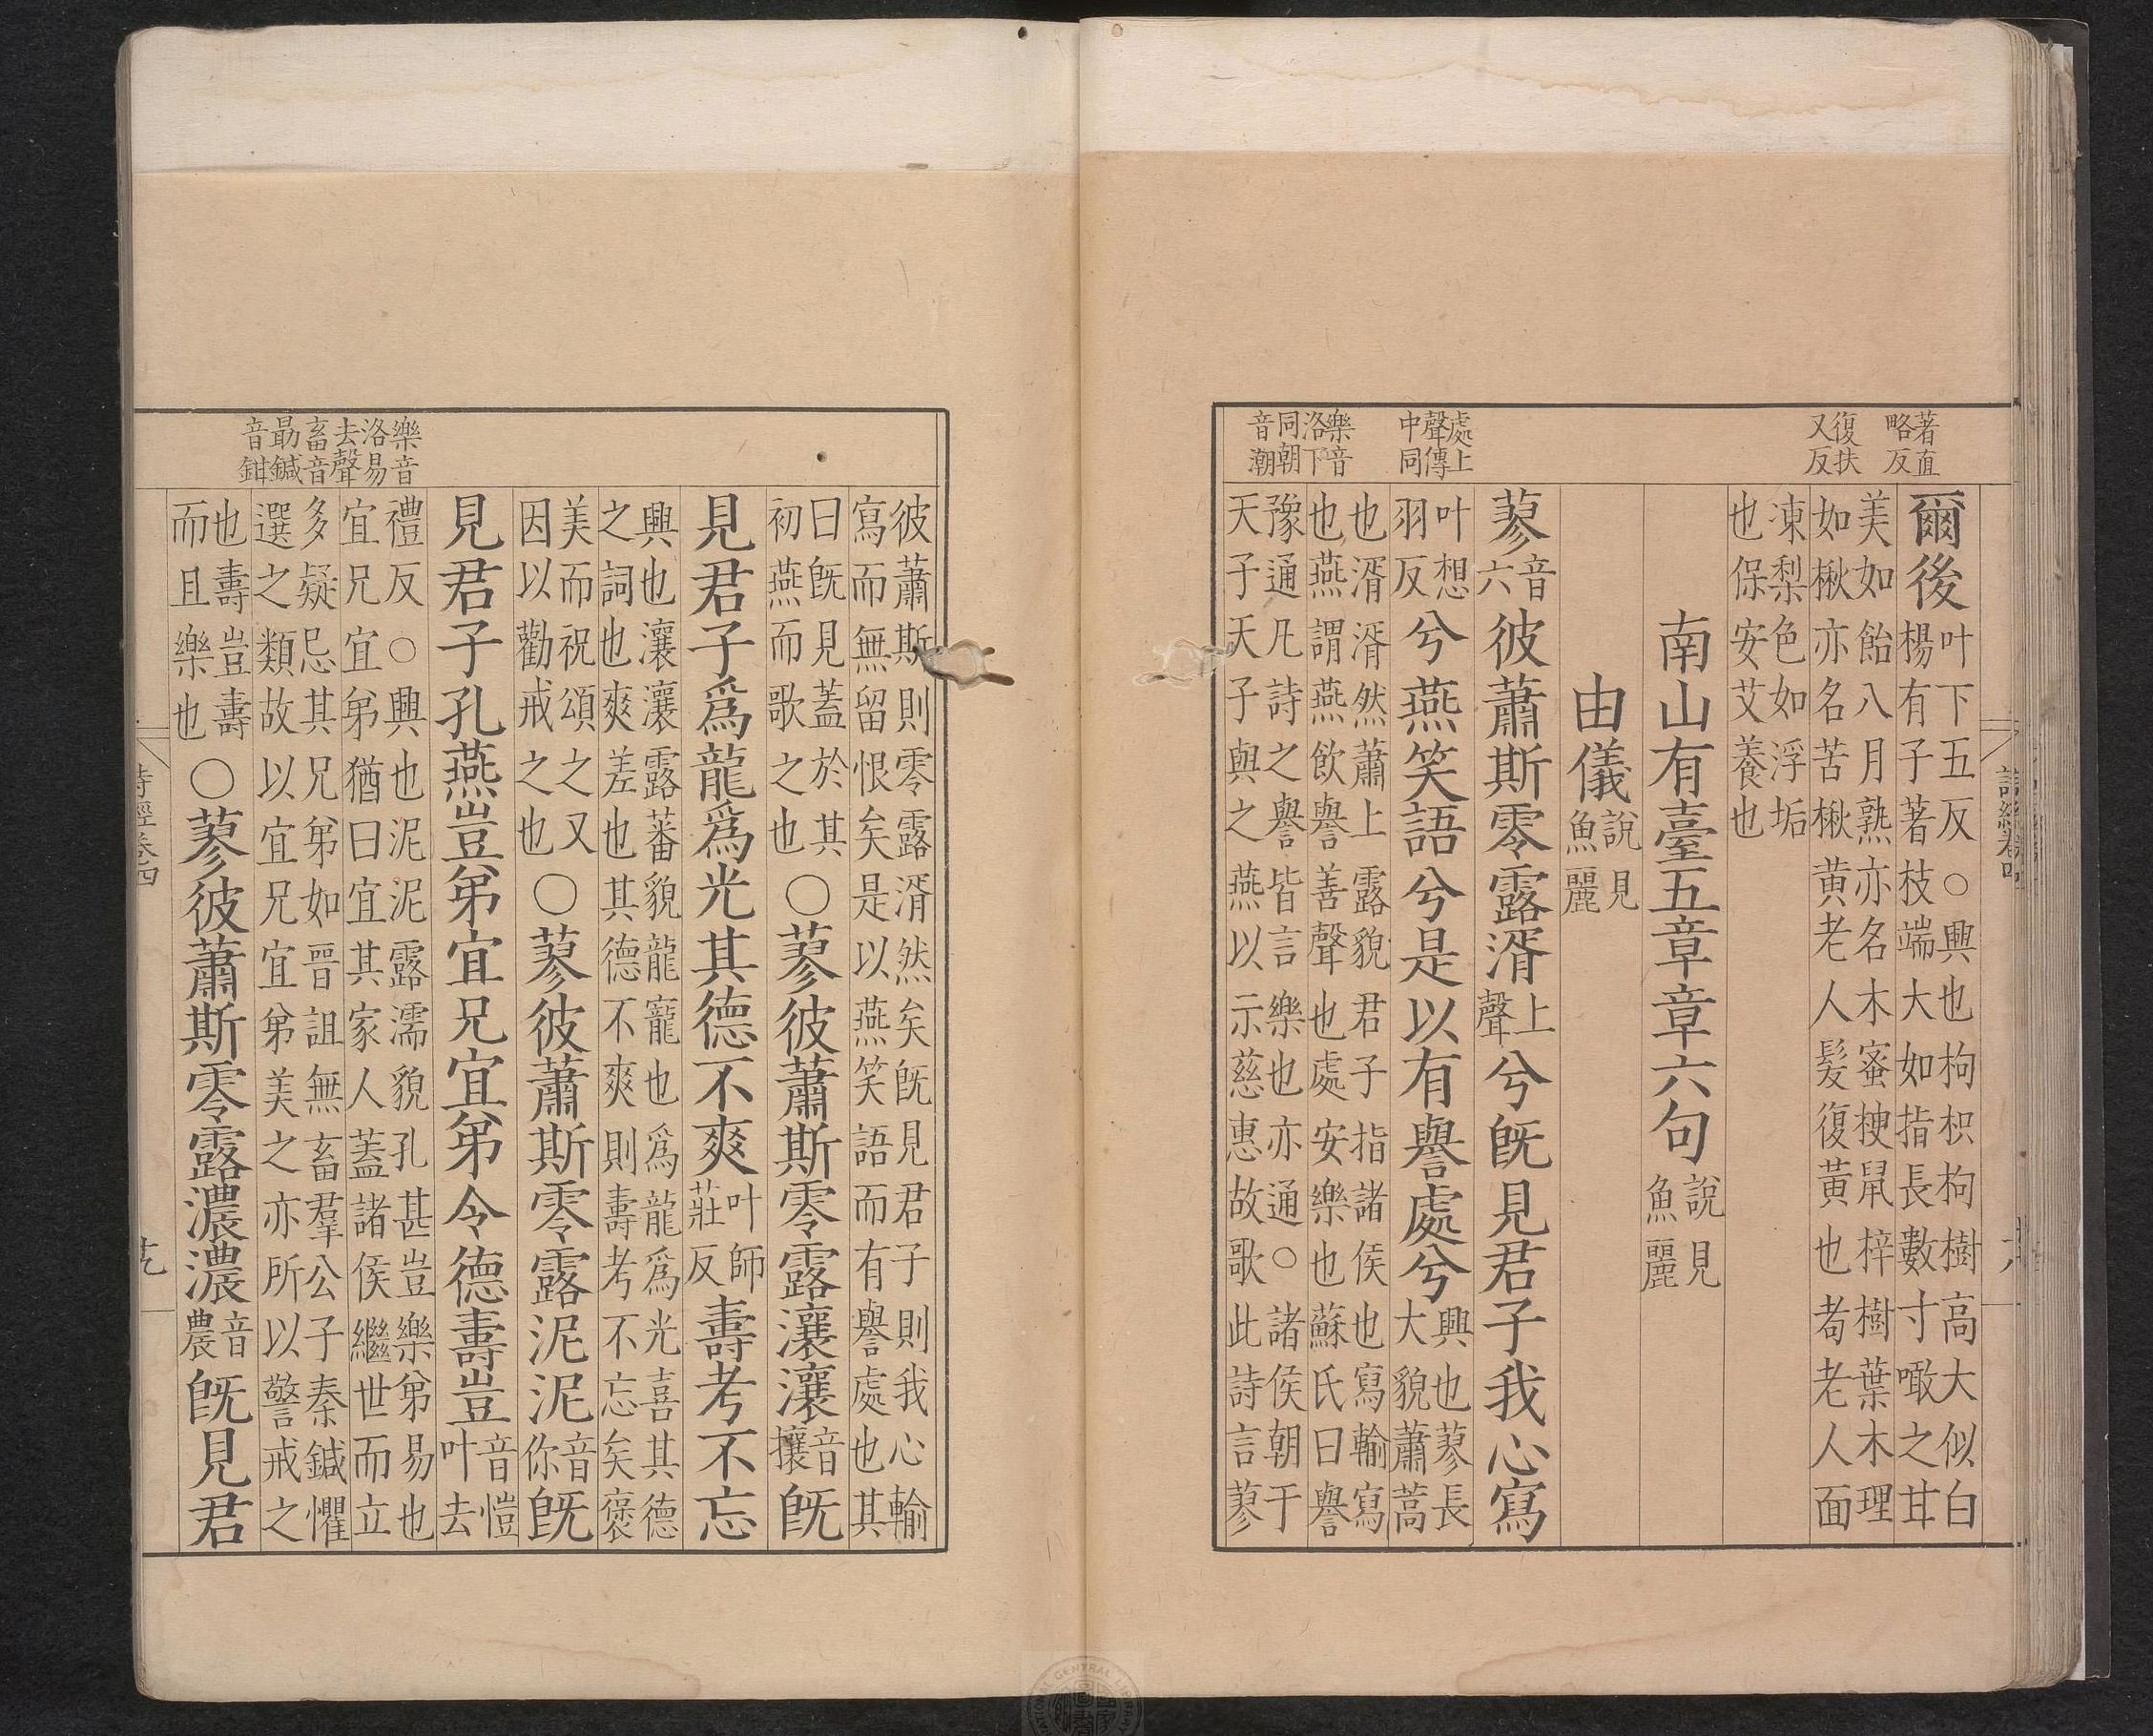 著直略反
復扶又反
處上聲傳中同
樂音洛下同朝音潮
爾後叶下五反○興也枸枳枸樹高大似白
楊有子著枝端大如指長數寸噉之甘
美如飴八月熟亦名木蜜楰鼠梓樹葉木理
如楸亦名苦楸黃老人髮復黃也耇老人面
凍梨色如浮垢
也保安艾養也
南山有臺五章章六句說見魚麗
由儀說見魚麗
蓼音六彼蕭斯零露湑上聲兮旣見君子我心寫
叶想羽反兮燕笑語兮是以有譽處兮興也蓼長大貌蕭蒿
也湑湑然蕭上露貌君子指諸侯也寫輸寫
也燕謂燕飲譽善聲也處安樂也蘇氏曰譽
豫通凡詩之譽皆言樂也亦通○諸侯朝于
天子天子與之燕以示慈惠故歌此詩言蓼
樂音洛易去聲畜音勗鍼音鉗
彼蕭斯則零露湑然矣旣見君子則我心輸
寫而無留恨矣是以燕笑語而有譽處也其
曰旣見蓋於其
初燕而歌之也○蓼彼蕭斯零露瀼瀼音攘旣
見君子爲龍爲光其德不爽叶師莊反壽考不忘
興也瀼瀼露蕃貌龍寵也爲龍爲光喜其德
之詞也爽差也其德不爽則壽考不忘矣褒
美而祝頌之又
因以勸戒之也○蓼彼蕭斯零露泥泥音你旣
見君子孔燕豈弟宜兄宜弟令德壽豈音愷叶去
禮反○興也泥泥露濡貌孔甚豈樂弟易也
宜兄宜弟猶曰宜其家人蓋諸侯繼世而立
多疑忌其兄弟如晉詛無畜羣公子秦鍼懼
選之類故以宜兄宜弟美之亦所以警戒之
也壽豈壽
而且樂也○蓼彼蕭斯零露濃濃音農旣見君